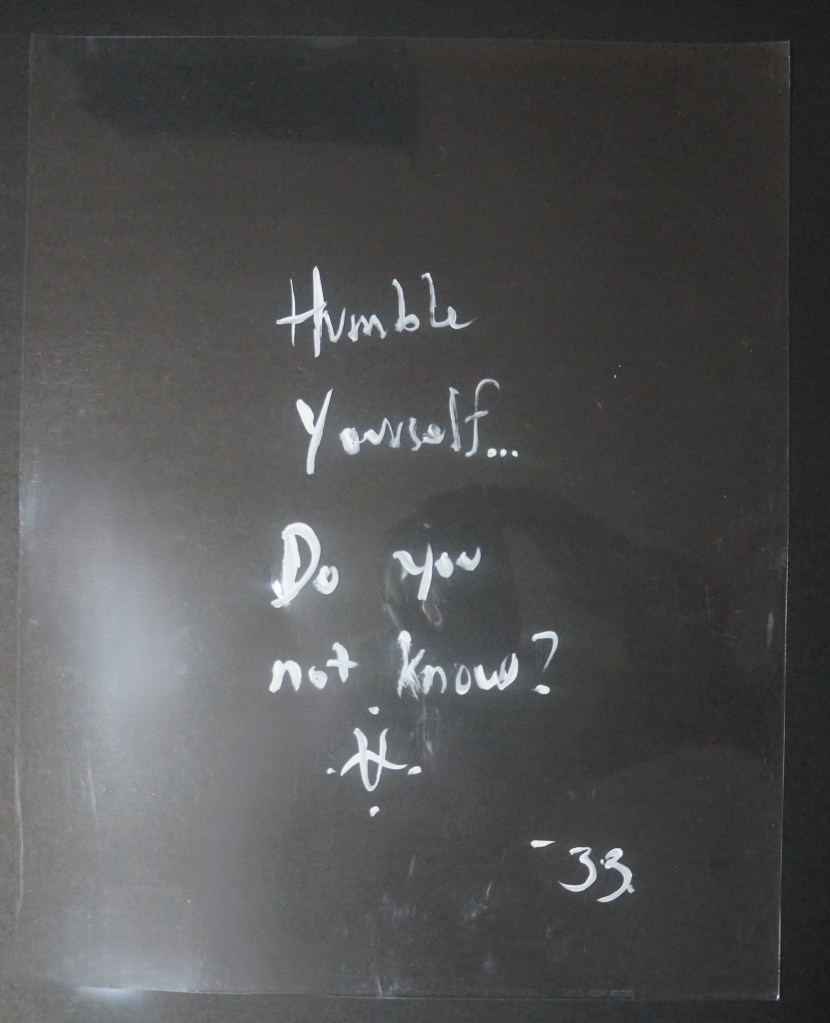 Humble
Yourself...
Do you
not know?
- 33